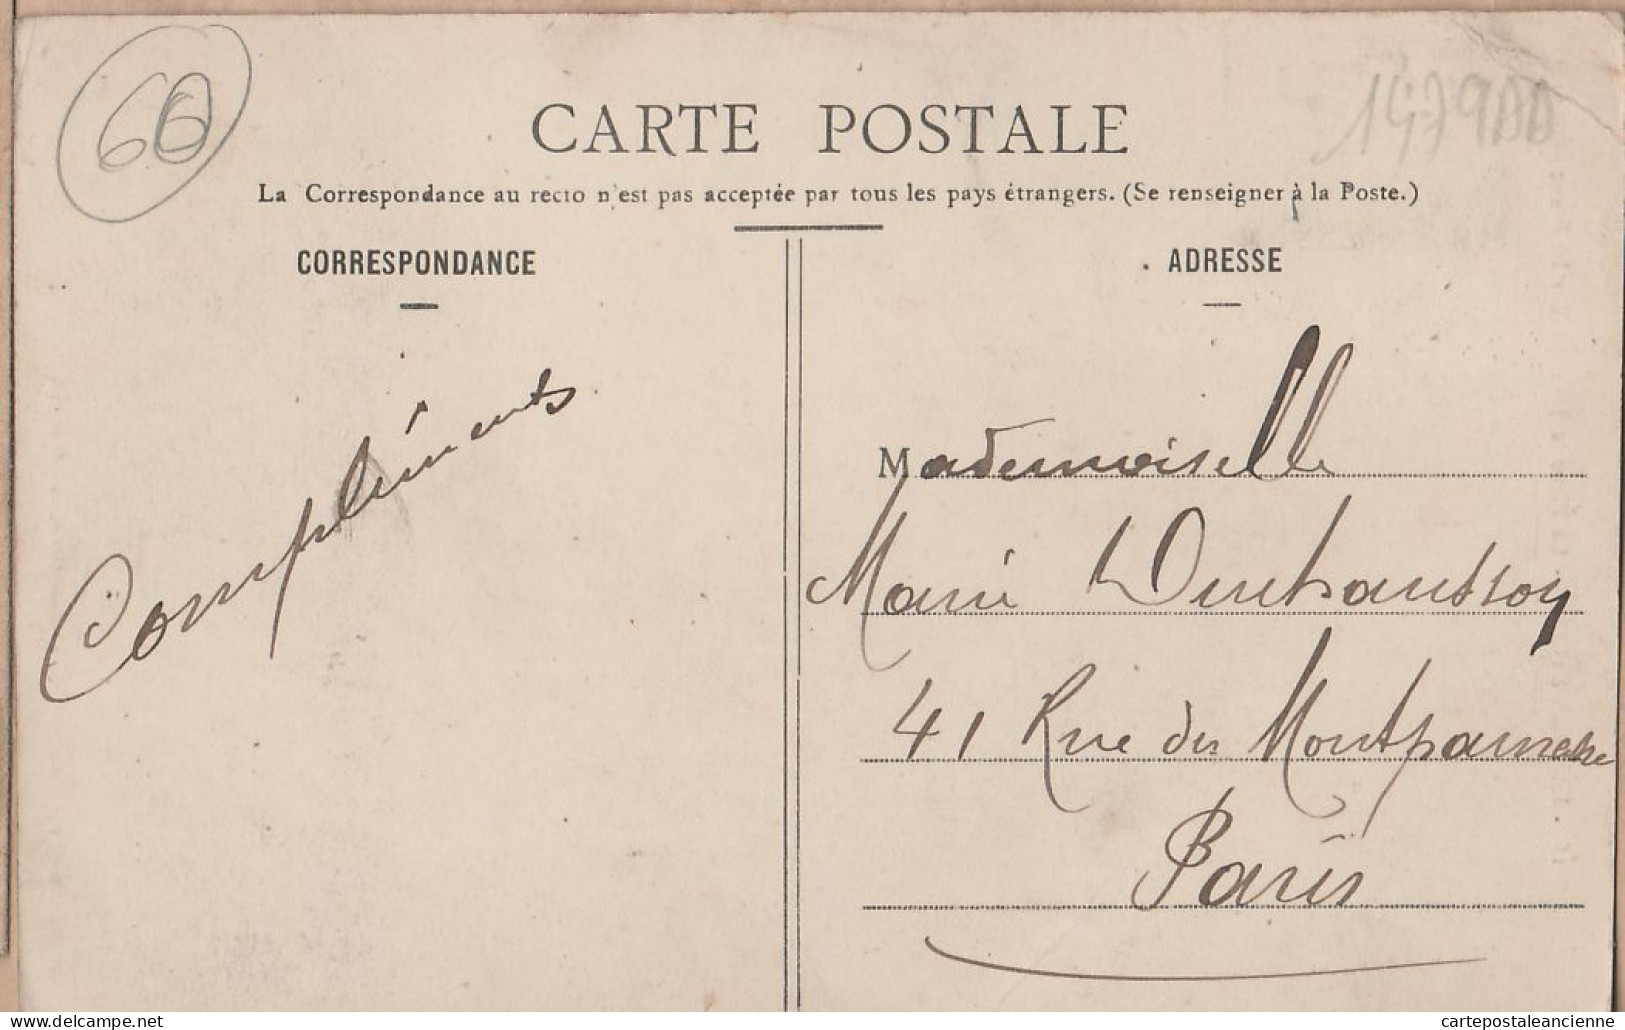 60
1479AA
CARTE POSTALE
La Correspondance au recto n'est pas acceptée par tous les pays étrangers. (Se renseigner à la Poste.)
CORRESPONDANCE
Compliments
ADRESSE
Mademoiselle
Marie Duchaussoy
41 Rue du Montparnasse
Paris
www.delcampe.net
cartepostaleancienne